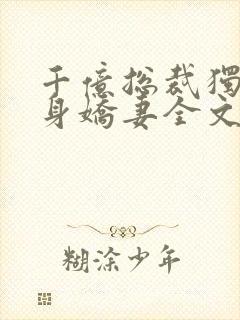 千億總裁獨
身嬌妻全文
糊涂少年